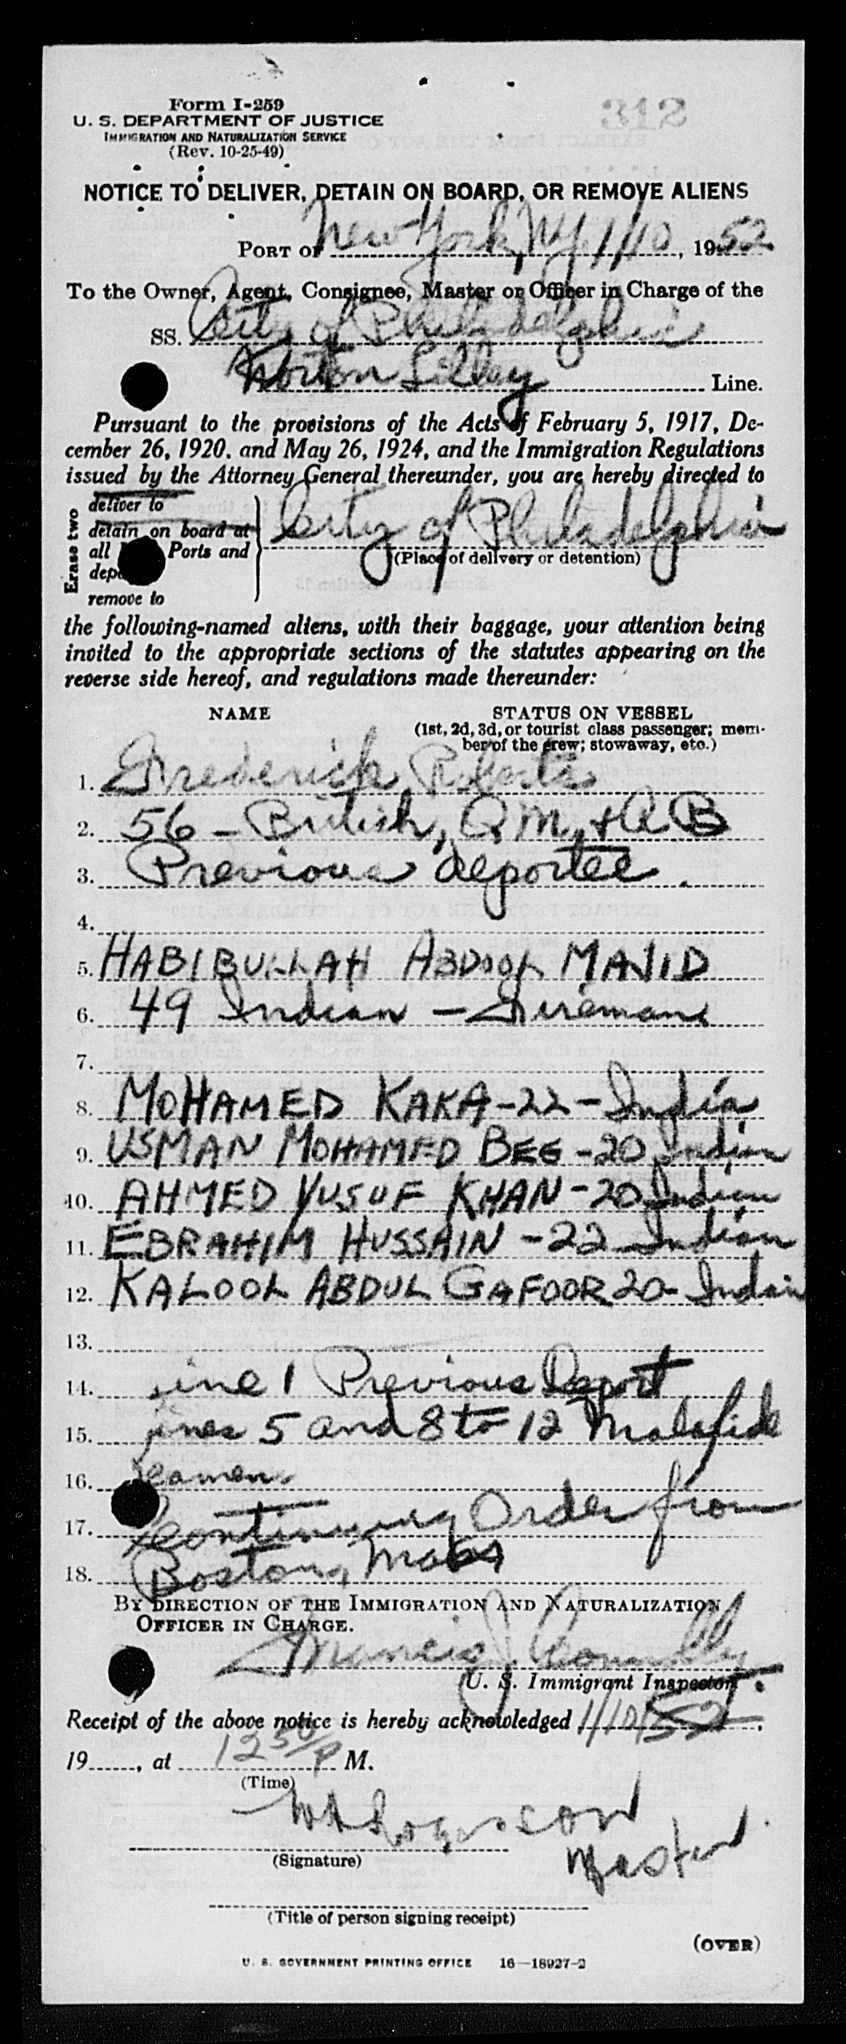 312
Form I-259
U. S. DEPARTMENT OF JUSTICE
IMMIGRATION AND NATURALIZATION SERVICE
(Rev. 10-25-49)
NOTICE TO DELIVER, DETAIN ON BOARD, OR REMOVE ALIENS
PORT OF New York, NY 1/10, 1952
To the Owner, Agent, Consignee, Master or Officer in Charge of the
SS. City of Philadelphia
Norton Lilley Line.
Pursuant to the provisions of the Acts of February 5, 1917, De-
cember 26, 1920, and May 26, 1924, and the Immigration Regulations
issued by the Attorney General thereunder, you are hereby directed to
Erase two
deliver to
detain on board at
all Ports and
remove to
City of Philadelphia
(Place of delivery or detention)
the following-named aliens, with their baggage, your attention being
invited to the appropriate sections of the statutes appearing on the
reverse side hereof, and regulations made thereunder:
NAME STATUS ON VESSEL
(1st, 2d, 3d, or tourist class passenger; mem-
ber of the crew; stowaway, etc.)
1. Frederick Roberts
2. 56 - British, Q.M. + A B
3. Previous deportee.
4.
5. HABIBULLAH ABDOOL MAJID
6. 49 Indian - Fireman
7.
8. MOHAMED KAKA - 22 - India
9. USMAN MOHAMED BEG - 20 Indian
10. AHMED YUSUF KHAN - 20 Indian
11. EBRAHIM HUSSAIN - 22 Indian
12. KALOOL ABDUL GAFOOR 20 - Indain
13.
14. Line 1 Previous Deport
15. Lines 5 and 8 to 12 Malafide
16. Seamen
17. Continuing Order from
18. Boston, Mass
BY DIRECTION OF THE IMMIGRATION AND NATURALIZATION
OFFICER IN CHARGE.
Francis J. Connolly
U. S. Immigrant Inspector.
Receipt of the above notice is hereby acknowledged 1/10/52,
19......, at 12 50/P M.
(Time)
Master
(Signature)
(Title of person signing receipt)
(OVER)
U. S. GOVERNMENT PRINTING OFFICE 16—18927-2